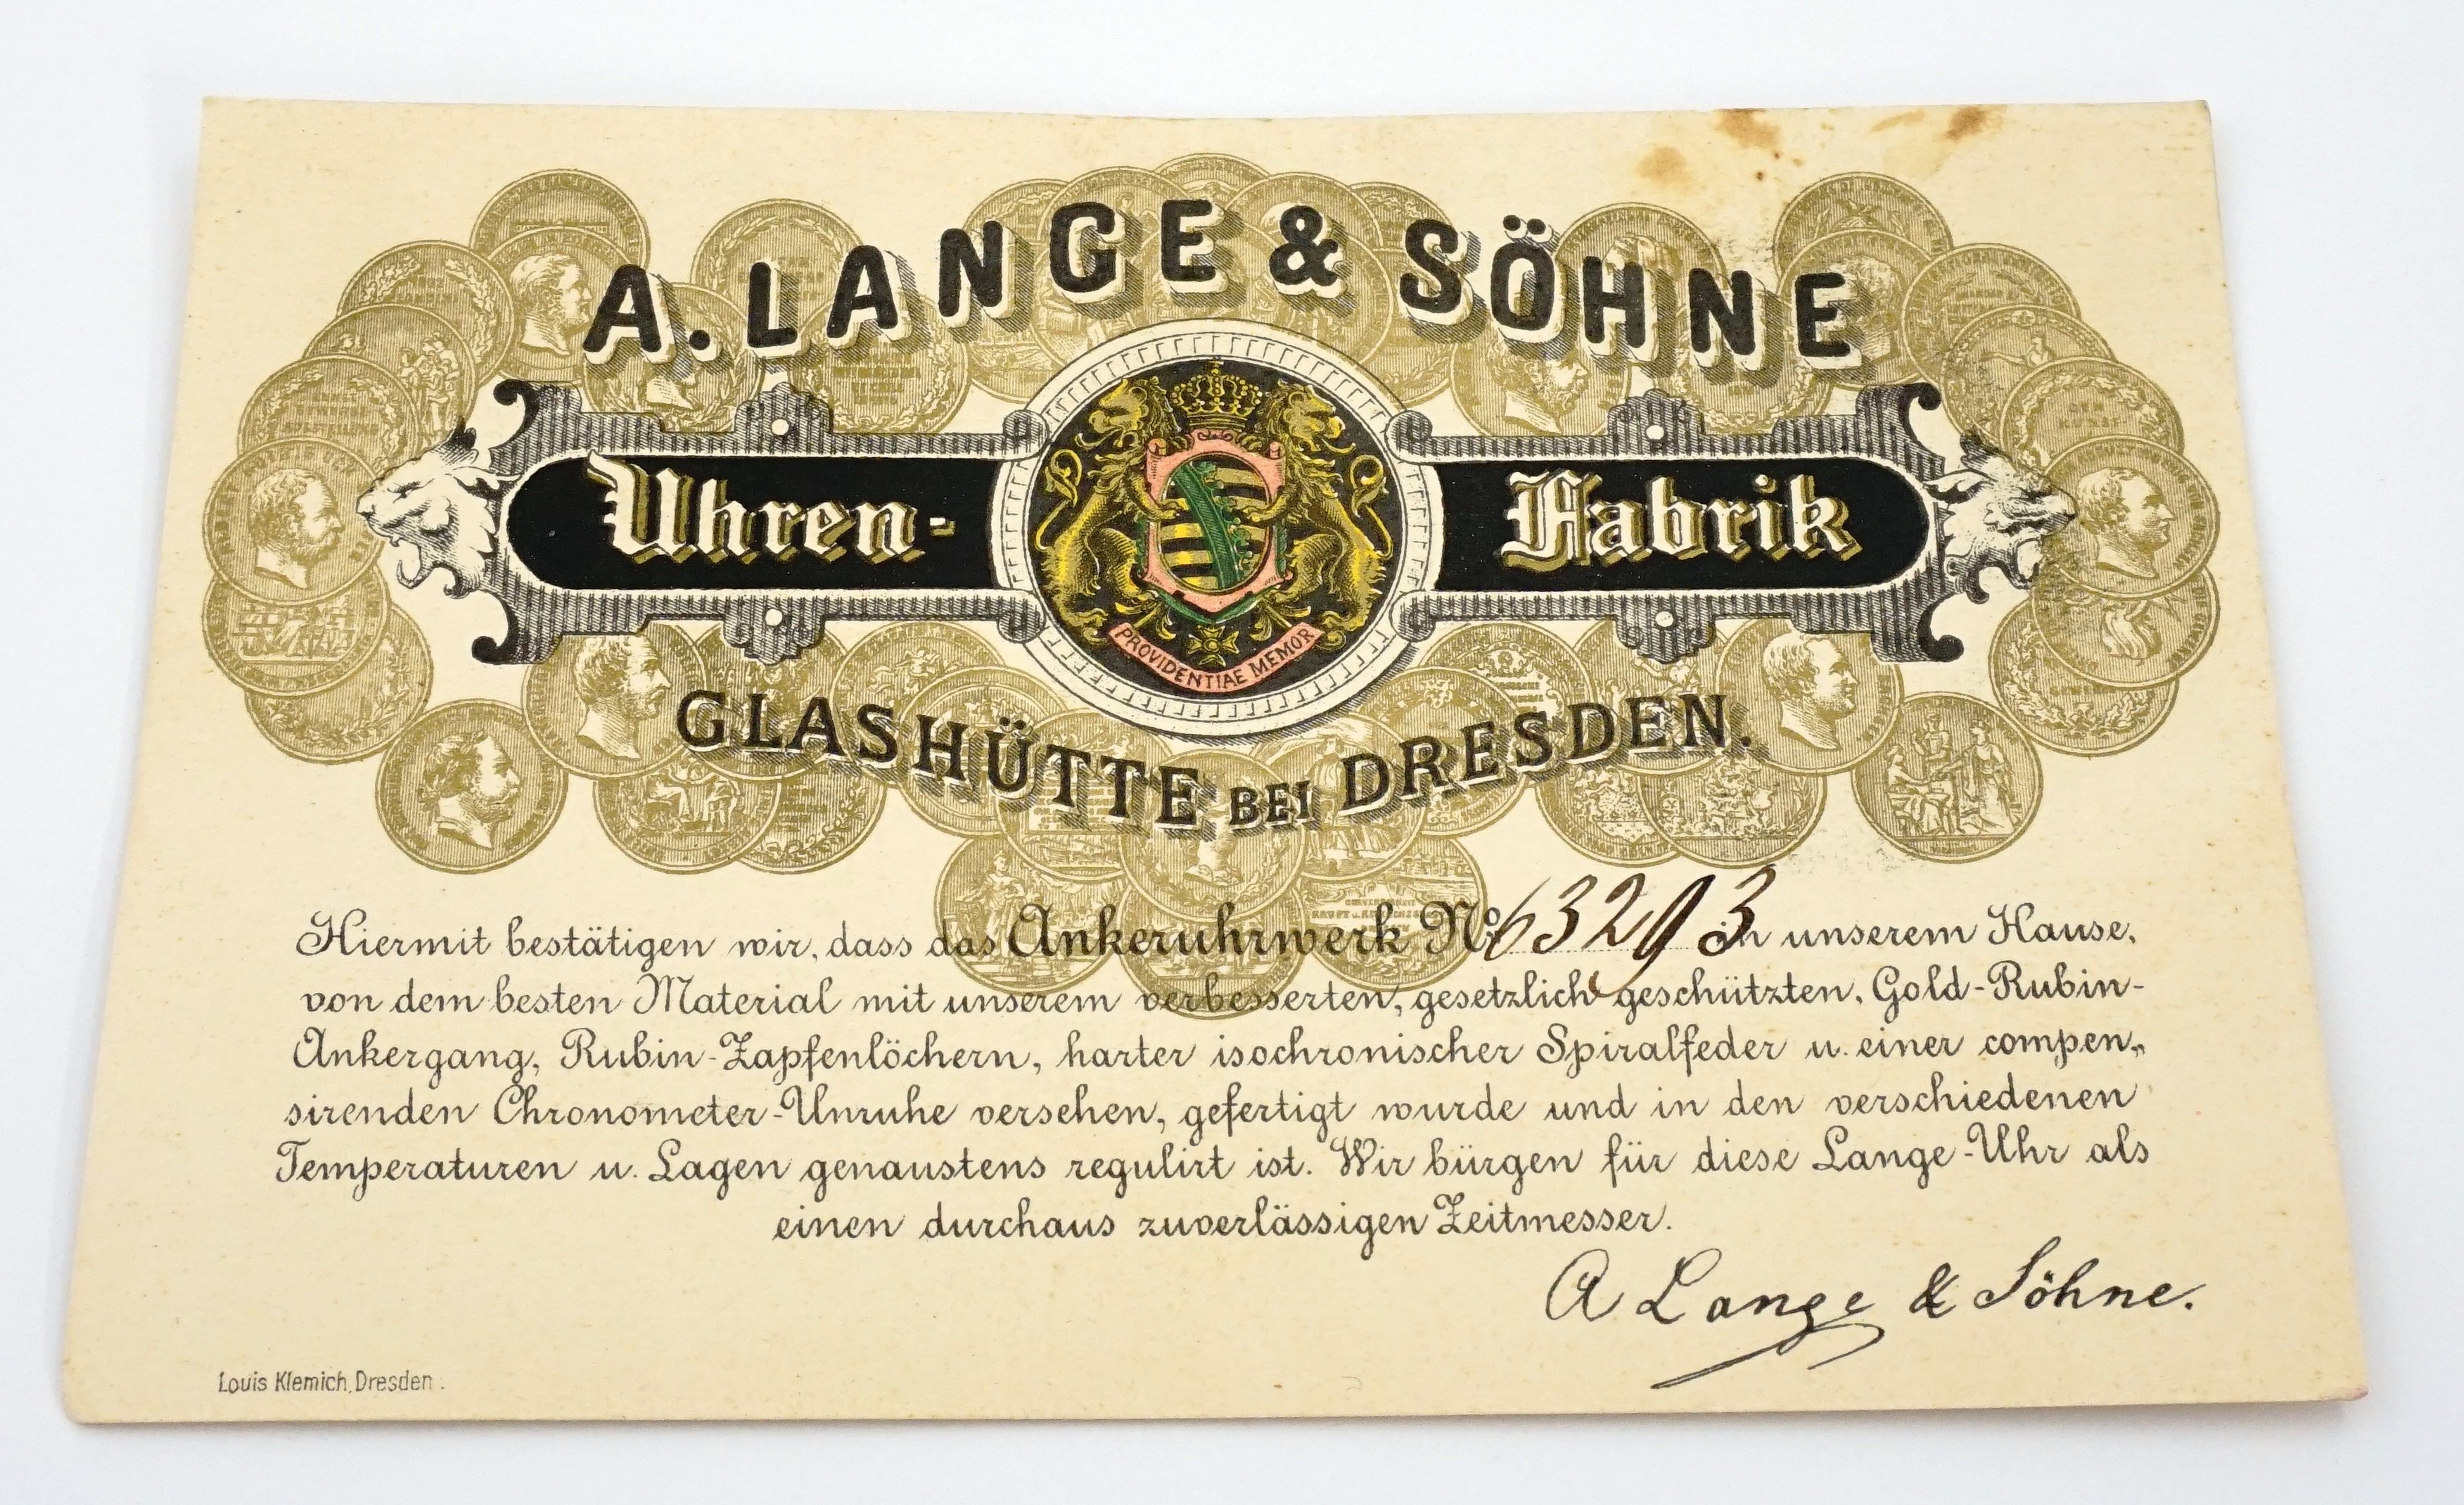 A. LANGE & SÖHNE
Uhren-Fabrik
PROVIDENTIAE MEMOR
GLASHÜTTE BEI DRESDEN.
Hiermit bestätigen wir, dass das Ankeruhrwerk No 63293 in unserem Hause,
von dem besten Material mit unserem verbesserten, gesetzlich geschützten, Gold-Rubin-
Ankergang, Rubin-Zapfenlöchern, harter isochronischer Spiralfeder u. einer compen„
sirenden Chronometer-Unruhe versehen, gefertigt wurde und in den verschiedenen
Temperaturen u. Lagen genaustens regulirt ist. Wir bürgen für diese Lange-Uhr als
einen durchaus zuverlässigen Zeitmesser.
A Lange & Söhne.
Louis Klemich, Dresden.